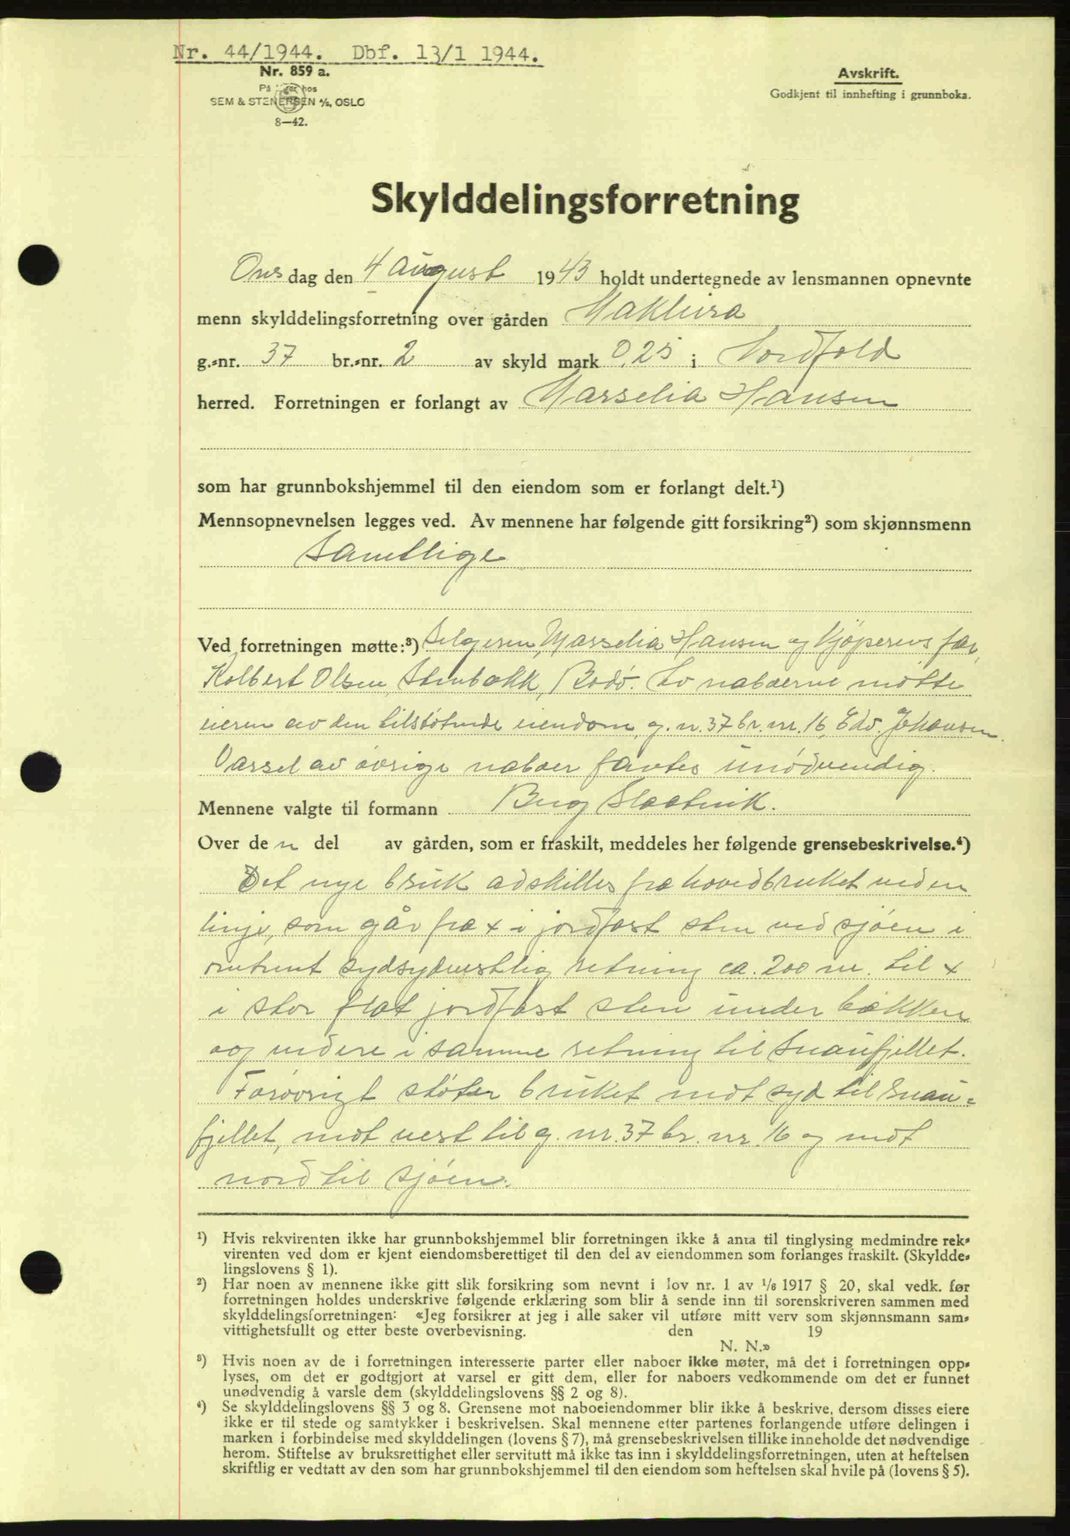 Nr. 44/1944. Dbf. 13/1 1944.
Nr. 859 a.
På lager hos
SEM & STENERSEN A/S, OSLO
8—42.
Avskrift.
Godkjent til innhefting i grunnboka.
Skylddelingsforretning
Ons dag den 4 august 1943 holdt undertegnede av lensmannen opnevnte
menn skylddelingsforretning over gården Makleira
g.-nr. 37 br.-nr. 2 av skyld mark 0,25 i Nordfold
herred. Forretningen er forlangt av Marselia Hansen
som har grunnbokshjemmel til den eiendom som er forlangt delt.¹)
Mennsopnevnelsen legges ved. Av mennene har følgende gitt forsikring²) som skjønnsmenn
Samtlige
Ved forretningen møtte:³) Selgeren, Marselia Hansen og kjøperens far,
Kolbert Olsen, Stenbakk, Bodø. Av naboerne møtte
eieren av den tilstøtende eiendom, g. nr. 37 br. nr. 16, Edv. Johansen.
Varsel av øvrige naboer fantes unødvendig.
Mennene valgte til formann Berg Slaatvik.
Over de n del av gården, som er fraskilt, meddeles her følgende grensebeskrivelse.⁴)
Det nye bruk adskilles fra hovedbruket ved en
linje, som går fra x i jordfast sten ved sjøen i
omtrent sydsydvestlig retning ca. 200 m. til x
i stor flat jordfast sten under bakken
og videre i samme retning til Snaufjellet.
Forøvrigt støter bruket mot syd til Snau-
fjellet, mot vest til g. nr. 37 br. nr. 16 og mot
nord til sjøen.
¹) Hvis rekvirenten ikke har grunnbokshjemmel blir forretningen ikke å anta til tinglysing medmindre rek-
virenten ved dom er kjent eiendomsberettiget til den del av eiendommen som forlanges fraskilt. (Skyldde-
lingslovens § 1).
²) Har noen av mennene ikke gitt slik forsikring som nevnt i lov nr. 1 av 1/6 1917 § 20, skal vedk. før
forretningen holdes underskrive følgende erklæring som blir å sende inn til sorenskriveren sammen med
skylddelingsforretningen: «Jeg forsikrer at jeg i alle saker vil utføre mitt verv som skjønnsmann sam-
vittighetsfullt og etter beste overbevisning. den 19
N. N.»
³) Hvis noen av de i forretningen interesserte parter eller naboer ikke møter, må det i forretningen opp-
lyses, om det er godtgjort at varsel er gitt dem, eller for naboers vedkommende om det er funnet
unødvendig å varsle dem (skylddelingslovens §§ 2 og 8).
⁴) Se skylddelingslovens §§ 3 og 8. Grensene mot naboeiendommer blir ikke å beskrive, dersom disses eiere
ikke er til stede og samtykker i beskrivelsen. Skal mennene etter partenes forlangende utføre delingen i
marken i forbindelse med skylddelingen (lovens § 7), må grensebeskrivelsen tillike inneholde det nødvendige
herom. Stiftelse av bruksrettighet eller servitutt må ikke tas inn i skylddelingsforretningen, uten at heftelsen
skriftlig er vedtatt av den som har grunnbokshjemmel til den eiendom som heftelsen skal hvile på (lovens § 5).